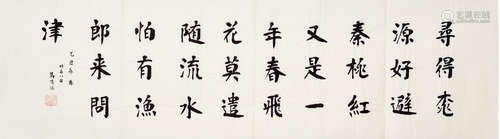 尋得桃
源好避
秦桃紅
又是一
年春飛
花莫遣
隨流水
怕有漁
郎来問
津